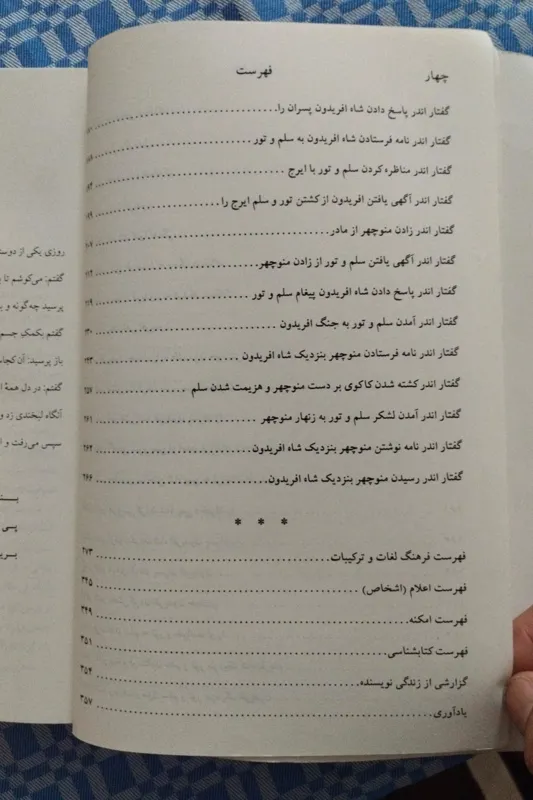 چهار
فهرست
گفتار اندر پاسخ دادن شاه افریدون پسران را
گفتار اندر نامه فرستادن شاه افریدون به سلم و تور
گفتار اندر مناظره کردن سلم و تور با ایرج
گفتار اندر آگهی یافتن افریدون از کشتن تور و سلم ایرج را
گفتار اندر زادن منوچهر از مادر
گفتار اندر آگهی یافتن سلم و تور از زادن منوچهر
گفتار اندر پاسخ دادن شاه افریدون پیغام سلم و تور
گفتار اندر آمدن سلم و تور به جنگ افریدون
گفتار اندر نامه فرستادن منوچهر بنزدیک شاه افریدون
گفتار اندر کشته شدن کاکوی بر دست منوچهر و هزیمت شدن سلم
گفتار اندر آمدن لشکر سلم و تور به زنهار منوچهر ۲۶۱
گفتار اندر نامه نوشتن منوچهر بنزدیک شاه افریدون ۲۶۲
گفتار اندر رسیدن منوچهر بنزدیک شاه افریدون ۲۶۶
* * *
فهرست فرهنگ لغات و ترکیبات ۲۷۳
فهرست اعلام (اشخاص) ۳۴۵
فهرست امکنه ۳۴۹
فهرست کتابشناسی ۳۵۱
گزارشی از زندگی نویسنده ۳۵۴
یادآوری ۳۵۷
روزی یکی از دوست
گفتم: می‌کوشم تا
پرسید چه‌گونه و
گفتم بکمک جسم
باز پرسید: آن کجا
گفتم: در دل همهٔ
آنگاه لبخندی زد و
سپس می‌رفت و